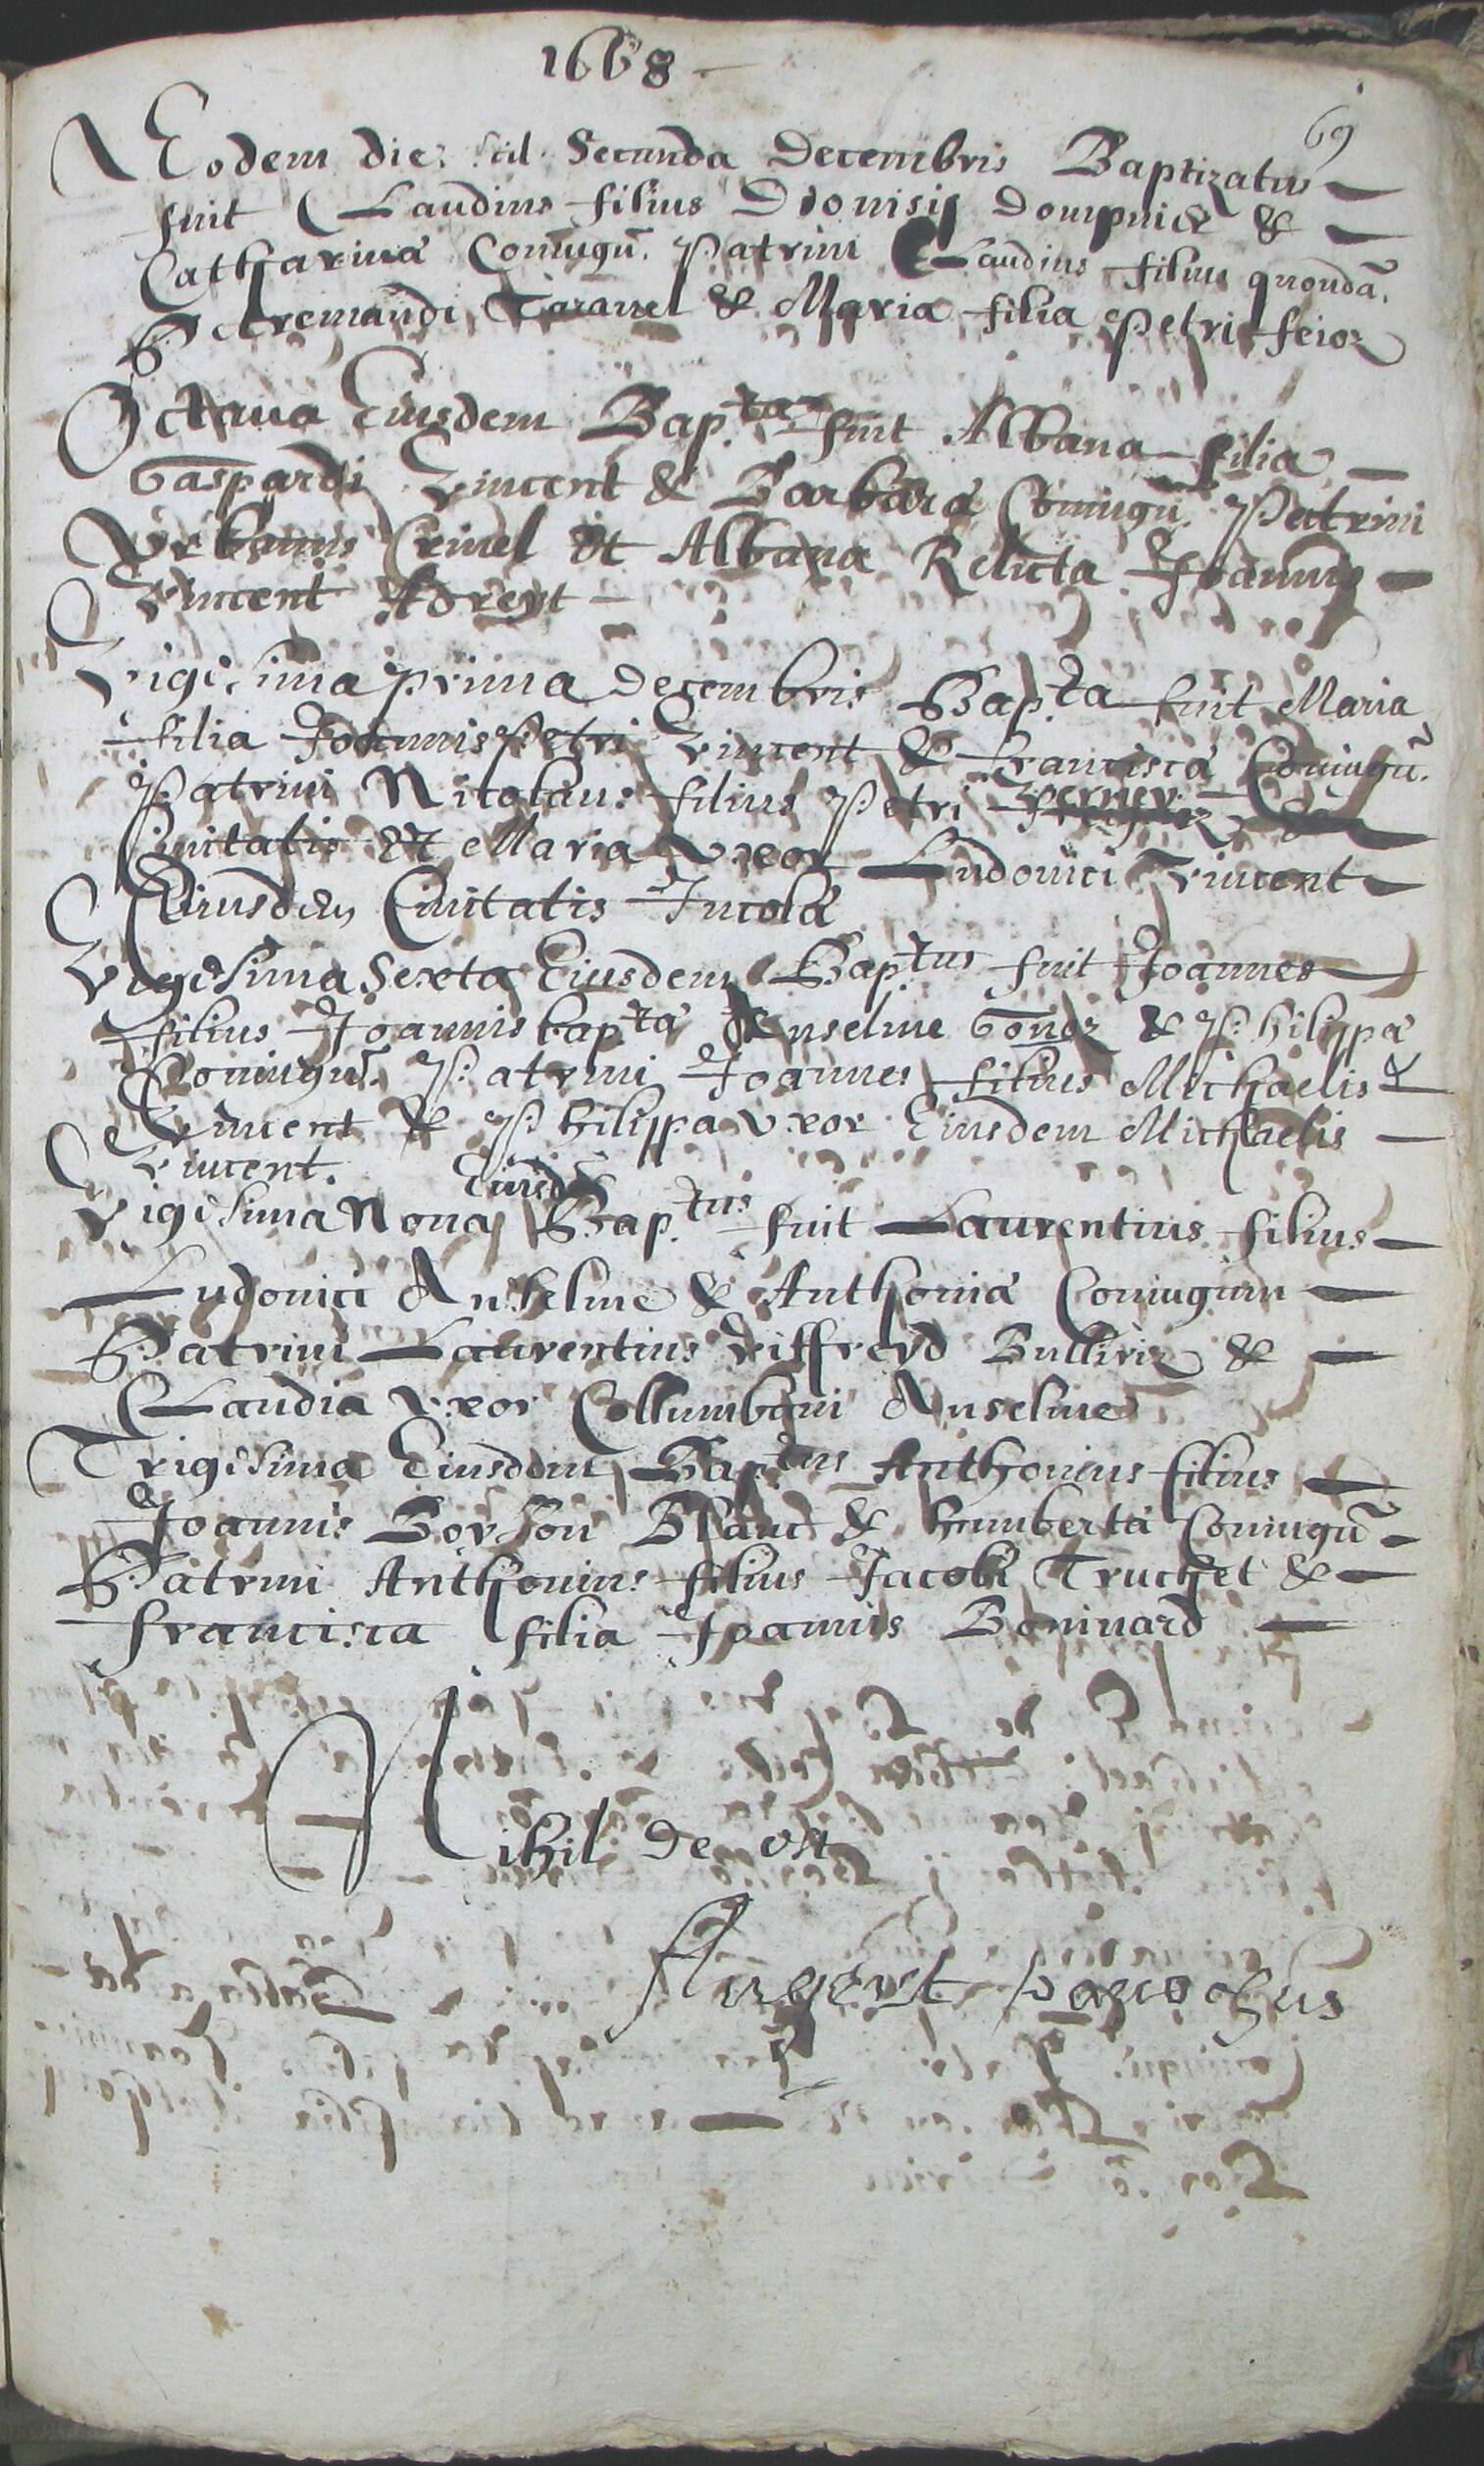 1668
69
Eodem die scil Secunda Decembris Baptizatus
fuit Claudius filius Dionisij Dompnier &
Catharinæ Coniugũ. Patrini Claudius filius quondã.
Petremandi Taravel & Maria filia Petri feioz
Octaua Eiusdem Bap.ta fuit Albana filia
Gaspardi Vincent & Barbaræ Coniugũ. Patrini
Vrbanus Crinel Et Albana Relicta Joannis
Vincent Adreyt
Vigesima prima Decembris Bap.ta fuit Maria
filia Joannis Petri Vincent & franciscæ Coniugũ.
Patrini Nicolaus filius Petri Verney
Ciuitatis Et Maria Vxor Ludouici Vincent
Eiusdem Ciuitatis Incolæ
Vigesima Sexta Eiusdem Bap.tus fuit Joannes
filius Joannis bap.tæ Anselme Gonez & Philippæ
Coniugũ. Patrini Joannes filius Michaelis
Vincent & Philippa Vxor Eiusdem Michaelis
Vincent.
Eiusd
Vigesima Nona Bap.tus fuit Laurentius filius
Ludouici Anselme & Anthoniæ Coniugum
Patrini Laurentius Viffreyd Bulliriz &
Claudia Vxor Collumbani Anselme
Trigesima Eiusdem Bap.tus Anthonius filius
Joannis Borson Blanc & humbertæ Coniugũ
Patrini Anthonius filius Jacobi Truchet &
francisca filia Joannis Boninard
Nihil de est
Augert parochus